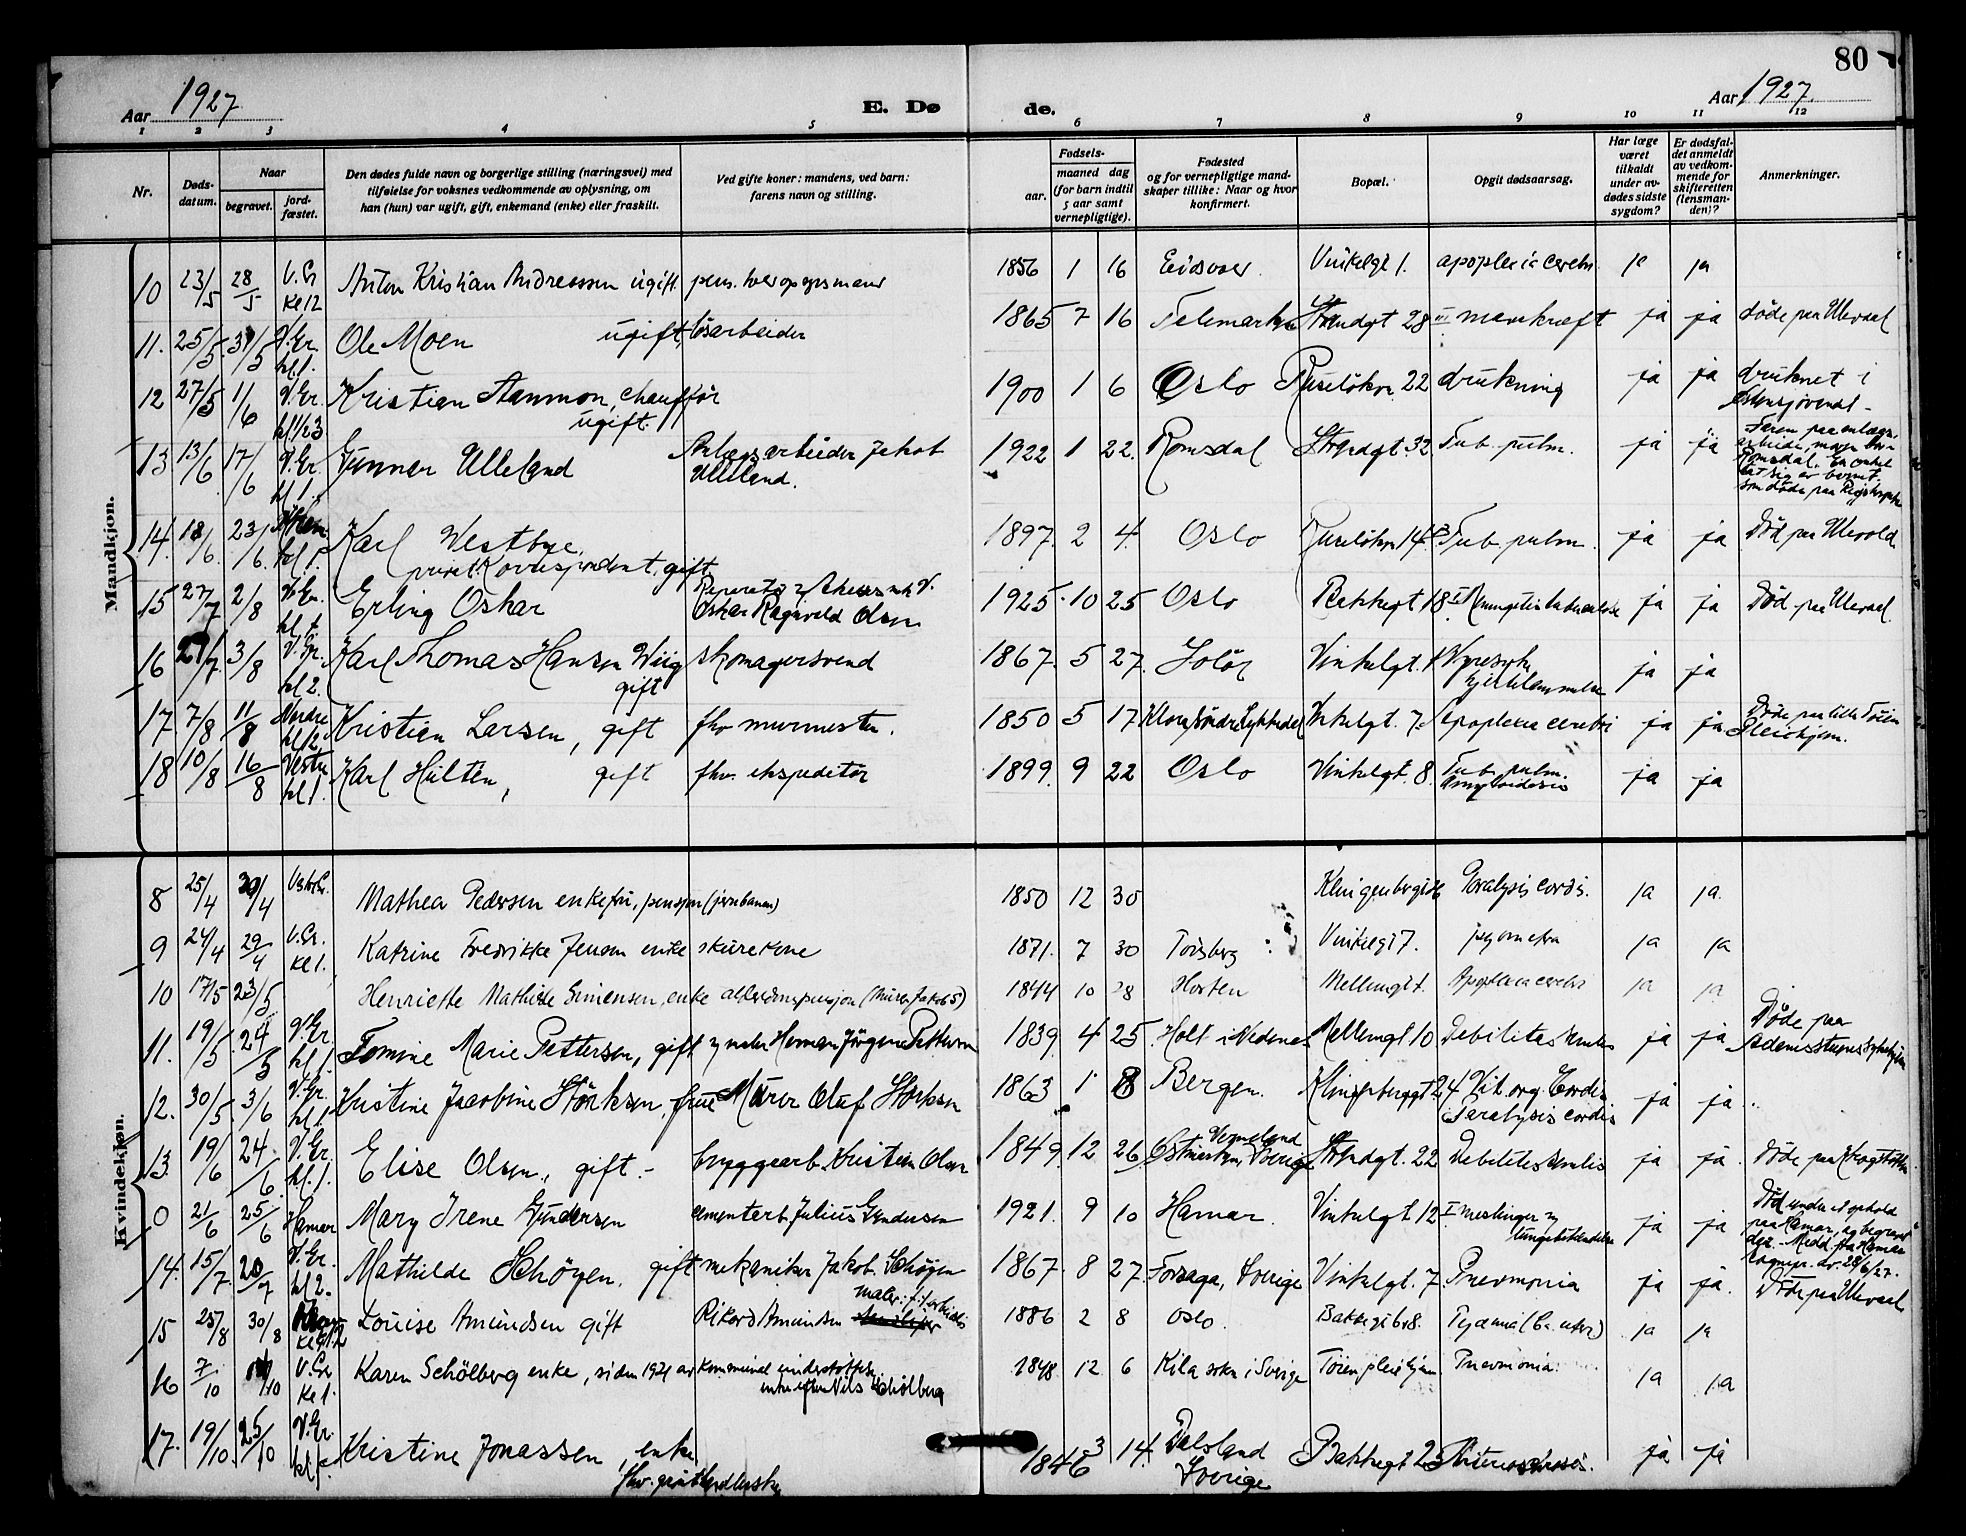 80
Aar 1927
E. Dø
de.
Aar 1927.
1 2 3 4 5 6 7 8 9 10 11 12
Nr.
Døds-
datum.
Naar
begravet.
jord-
fæstet.
Den dødes fulde navn og borgerlige stilling (næringsvei) med
tilføielse for voksnes vedkommende av oplysning, om
han (hun) var ugift, gift, enkemand (enke) eller fraskilt.
Ved gifte koner: mandens, ved barn:
farens navn og stilling.
Fødsels-
aar.
maaned dag
(for barn indtil
5 aar samt
vernepligtige).
Fødested
og for vernepligtige mand-
skaper tillike: Naar og hvor
konfirmert.
Bopæl.
Opgit dødsaarsag.
Har læge
været
tilkaldt
under av-
dødes sidste
sygdom?
Er dødsfal-
det anmeldt
av vedkom-
mende for
skifteretten
(lensman-
den)?
Anmerkninger.
Mandkjøn.
10 23/5 28/5 V. Gr kl 12 Anton Kristian Andreassen ugift pens. 1856 1 16 Eidsvoer. Vinkelgt 1. apoplexia cerebri ja ja
11. 25/5 31/5 V. Gr. kl. 1. Ole Moen ugift, løsarbeider 1865 7 16 Telemarken Strandgt 28 III mavekræft ja ja døde paa Ullevaal
12 27/5 1/6 V. Gr. kl 1/2 3 Kristian Aammon, chauffør ugift. 1900 1 6 Oslo Ruseløkvn 22 drukning ja ja druknet i Østensjøvand -
13 13/6 17/6 V. Gr. kl 1. Gunnar Ulleland Anlægsarbeider Jakob Ulleland. 1922 1 22. Romsdal Strandgt. 32 Tub. pulm. ja ja Faren paa anlægs-
arbeide,
Romsdal. En onkel
som døde paa
14. 18/6 23/6. kl. 1. Karl Westbye, privat. Korrespondent, gift 1897. 2 4. Oslo Ruseløkvn 14 Tub. pulm. ja ja Død paa Ullevold.
15 27/7 2/8 V. Gr. kl. 1 Erling Oskar Reparatør v/ Akers mek V. Oskar Ragnvald Olsen 1925. 10 25 Oslo Bakkegt 18 II Meningitis tuberculose ja ja Død paa Ullevaal.
16 29/7 3/8 V. Gr. kl 2. Karl Thomas Hansen Wiig gift skomagersvend 1867. 5 27. Solør Vinkelgt. 1 Nyresyke Hjertelammelse ja ja
17. 7/8 11/8 Nordre kl 12 Kristian Larsen, gift fhv murmester. 1850 5 17 Vinkelgt. 7. Apoplexia cerebri ja ja Døde paa Lille Tøien Pleiehjem.
18 10/8 16/8 Vestre kl 1. Karl Hultén, gift fhv. ekspeditør 1899. 9 22 Oslo Vinkelgt. 8. Tub. pulm. Amyloidosis ja ja
Kvindekjøn.
8 25/4 30/4 Vestre Gr. Mathea Pedersen enkefru, pensjon (jernbanen) 1850 12 30 Klingenberggt Paralysis cordis. ja ja.
9 24/4 29/4 V. Gr. kl 1. Katrine Fredrikke Jensen enke skurekone 1871. 7 30 Tønsberg Vinkelgt 7. pyometra ja ja
10 17/5 23/5 Henriette Mathilde Simensen, enke alderdomspensjon 1844 10 28 Horten Mellemgt. Apoplexia cerebri ja ja
11. 19/5 24/5 V. Gr. kl 1. Tomine Marie Pettersen, gift m/ maler Herman Jørgen Pettersen 1839. 4 25. Holt i Nedenes Mellemgt 10 Debilitas senilis ja ja Døde paa
12. 30/5 3/6 V. Gr. kl 1. Kristine Jacobine Størksen, frue Murer Oluf Størksen 1863 1 8 Bergen. Klingenberggt 24 Vit. org. Cordis Paralysis cordis ja ja
13 19/6 24/6. V. Gr. kl. 1. Elise Olsen, gift. - bryggearb. Kristian Olsen 1849 12 26 Østmarken, Vermeland Sverige Strandgt. 22 Debilitas senilis ja ja Døde paa Krogstøtten
0 21/6 25/6 Hamar Mary Irene Gundersen cementarb. Julius Gundersen 1921. 9 10 Hamar. Vinkelgt 12 I meslinger og lungebetændelse ja ja Død under et ophold
paa Hamar, og begravet
der. - Medd. fra Hamar
sognepr. av 28/6/27.
14. 15/7 20/7 V. Gr. kl 2. Mathilde Schøyen. gift mekaniker Jakob Schøyen 1867. 8 27. Forsaga, Sverige Vinkelgt. 7 Pneumonia ja ja. Døde paa Ullevaal
15 25/8 30/8 Louise Amundsen gift Rikard Amundsen maler 1886 2 8 Oslo. Bakkegt 6 o 8. Pyæmia (Ca. uteri) ja ja
16 7/10 /10 V. Gr kl 1. Karen Schölberg enke, siden 1921 av kommunal understøttelse enke efter Nils Schölberg 1848 12 6 Kila sokn i Sverige Tøien pleiehjem Pneumonia. ja ja
17. 19/10 25/10 V. Gr. Kristine Jonassen, enke fhv. grønthandlerske 1846 3 14. Dalsland Sverige Bakkegt 23 Arteriosclerosis. ja ja